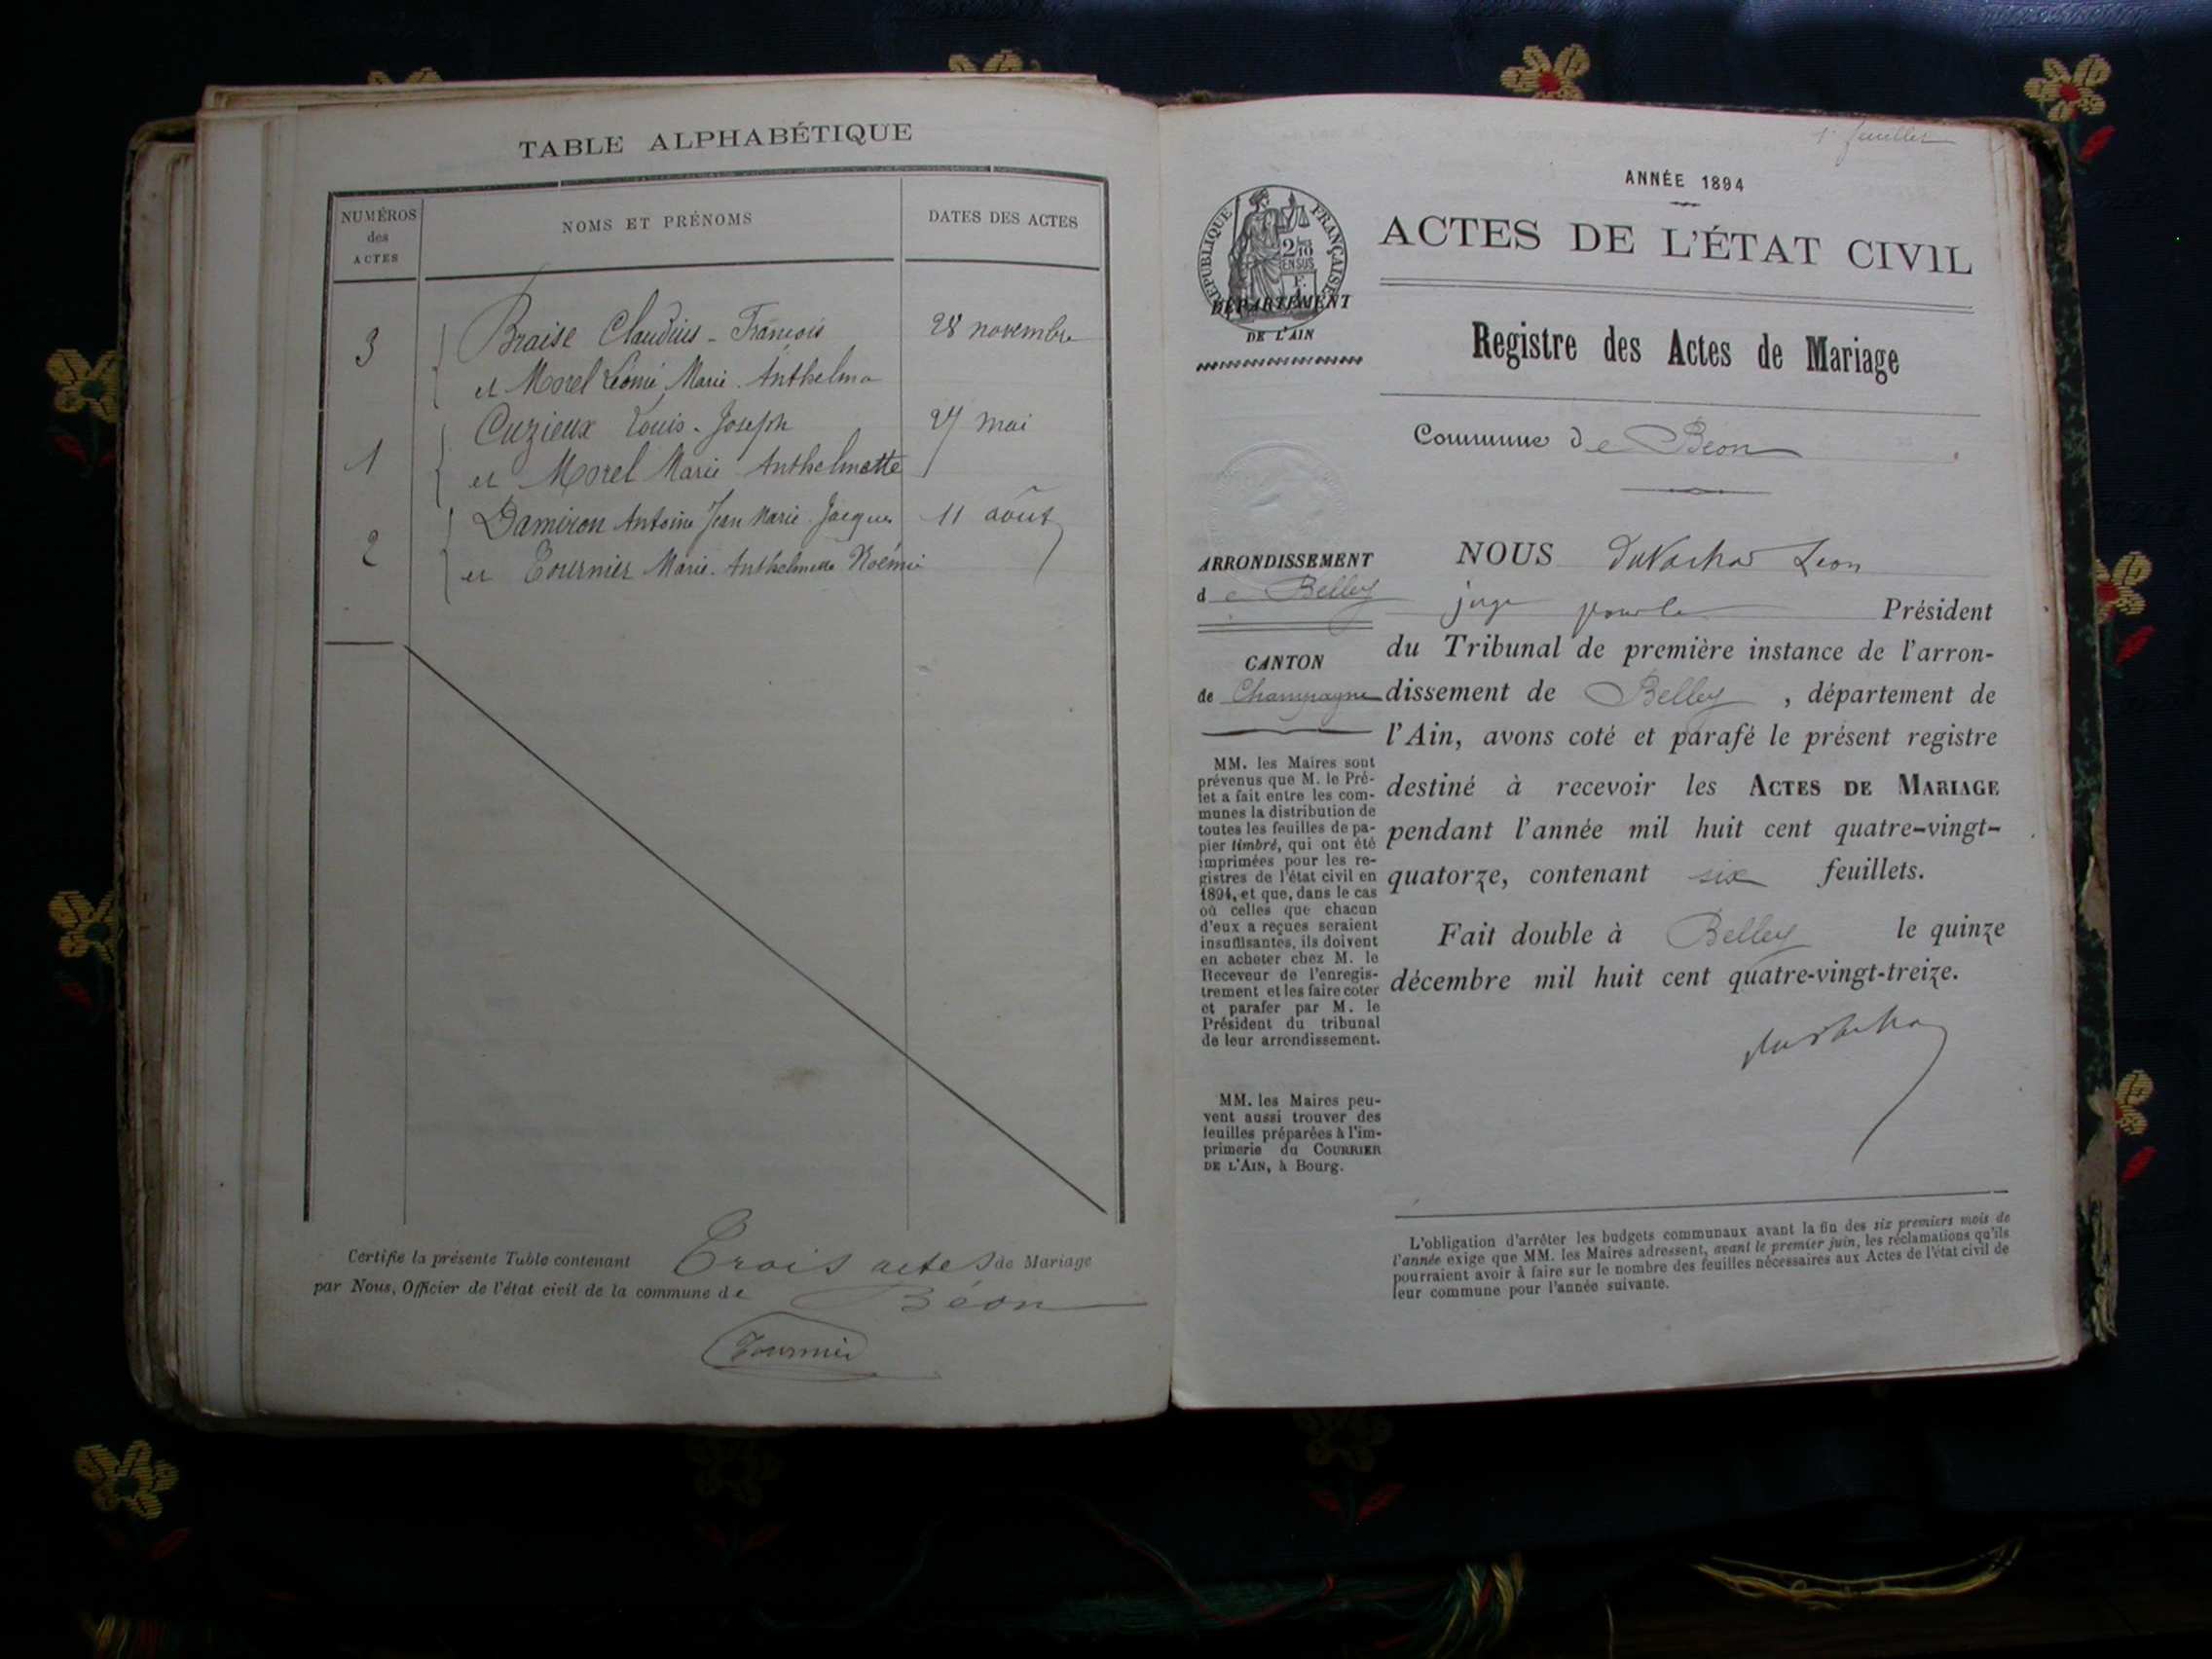 TABLE ALPHABÉTIQUE
NUMÉROS
des
ACTES
NOMS ET PRÉNOMS
DATES DES ACTES
3
Braise Claudius - François
28 novembre
et Morel Léonie Marie Anthelma
Cuzieux Louis - Joseph
27 mai
1
et Morel Marie Anthelmette
Damiron Antoine Jean Marie Jacques
11 août
2
et Tournier Marie Anthelmette Noémie
Certifie la présente Table contenant Trois actes de Mariage
par Nous, Officier de l'état civil de la commune de Béon
Tournier
1er feuillet
ANNÉE 1894
ACTES DE L'ÉTAT CIVIL
RÉPUBLIQUE FRANÇAISE
2/10 EN SUS
DÉPARTEMENT
DE L'AIN
Registre des Actes de Mariage
Commune de Béon
ARRONDISSEMENT
de Belley
CANTON
de Champagne
MM. les Maires sont
prévenus que M. le Pré-
fet a fait entre les com-
munes la distribution de
toutes les feuilles de pa-
pier timbré, qui ont été
imprimées pour les re-
gistres de l'état civil en
1894, et que, dans le cas
où celles que chacun
d'eux a reçues seraient
insuffisantes, ils doivent
en acheter chez M. le
Receveur de l'enregis-
trement et les faire coter
et parafer par M. le
Président du tribunal
de leur arrondissement.
MM. les Maires peu-
vent aussi trouver des
feuilles préparées à l'im-
primerie du COURRIER
DE L'AIN, à Bourg.
NOUS Léon
juge pour le Président
du Tribunal de première instance de l'arron-
dissement de Belley, département de
l'Ain, avons coté et parafé le présent registre
destiné à recevoir les ACTES DE MARIAGE
pendant l'année mil huit cent quatre-vingt-
quatorze, contenant six feuillets.
Fait double à Belley le quinze
décembre mil huit cent quatre-vingt-treize.
L'obligation d'arrêter les budgets communaux avant la fin des six premiers mois de
l'année exige que MM. les Maires adressent, avant le premier juin, les réclamations qu'ils
pourraient avoir à faire sur le nombre des feuilles nécessaires aux Actes de l'état civil de
leur commune pour l'année suivante.